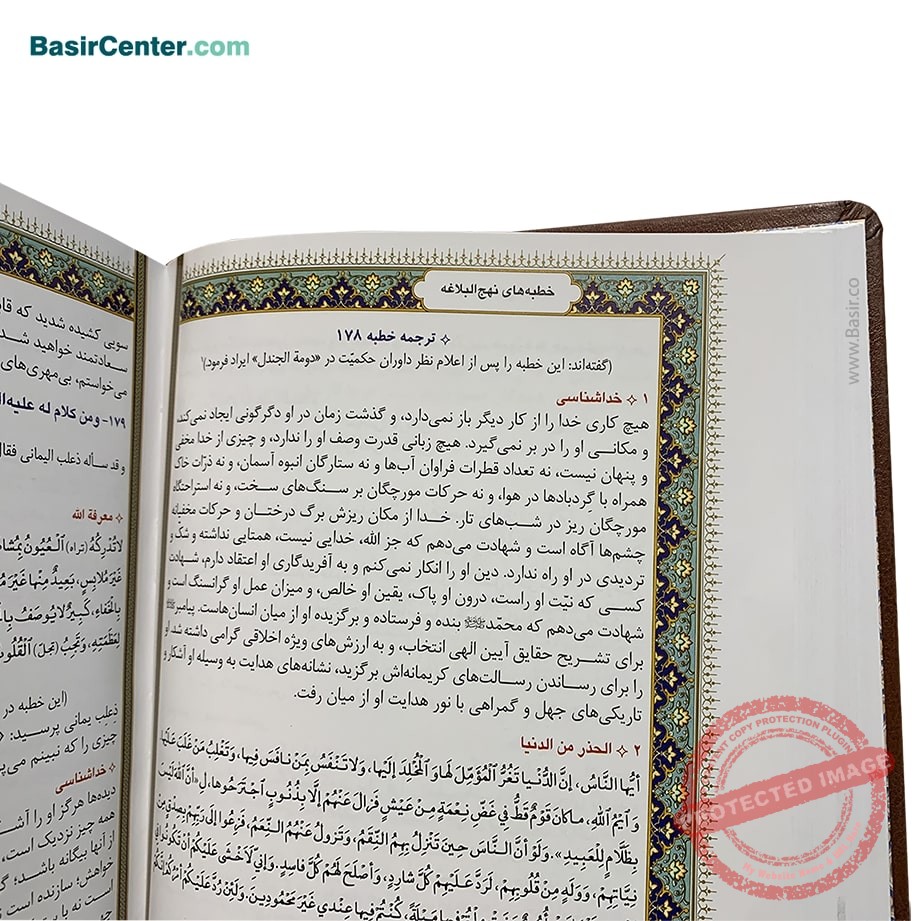 BasirCenter.com
www.Basir.co
خطبه‌های نهج‌البلاغه
ترجمه خطبه ۱۷۸
(گفته‌اند: این خطبه را پس از اعلام نظر داوران حکمیّت در «دومة الجندل» ایراد فرمود:)
۱ خداشناسی
هیچ کاری خدا را از کار دیگر باز نمی‌دارد، و گذشت زمان در او دگرگونی ایجاد نمی‌کند،
و مکانی او را در بر نمی‌گیرد. هیچ زبانی قدرت وصف او را ندارد، و چیزی از خدا مخفی
و پنهان نیست، نه تعداد قطرات فراوان آب‌ها و نه ستارگان انبوه آسمان، و نه ذرّات خاک
همراه با گِردبادها در هوا، و نه حرکات مورچگان بر سنگ‌های سخت، و نه استراحتگاه
مورچگان ریز در شب‌های تار. خدا از مکان ریزش برگ درختان و حرکات مخفیانه
چشم‌ها آگاه است و شهادت می‌دهم که جز الله، خدایی نیست، همتایی نداشته و شک و
تردیدی در او راه ندارد. دین او را انکار نمی‌کنم و به آفریدگاری او اعتقاد دارم، شهادت
کسی که نیّت او راست، درون او پاک، یقین او خالص، و میزان عمل او گرانسنگ است و
شهادت می‌دهم که محمّد بنده و فرستاده و برگزیده او از میان انسان‌هاست. پیامبر
برای تشریح حقایق آیین الهی انتخاب، و به ارزش‌های ویژه اخلاقی گرامی داشته شد. او
را برای رساندن رسالت‌های کریمانه‌اش برگزید، نشانه‌های هدایت به وسیله او آشکار و
تاریکی‌های جهل و گمراهی با نور هدایت او از میان رفت.
۲ الحذر من الدنیا
أَيُّهَا النَّاسُ، إِنَّ الدُّنْيَا تَغُرُّ الْمُؤَمِّلَ لَهَا وَ الْمُخْلِدَ إِلَيْهَا، وَ لَا تَنْفَسُ بِمَنْ نَافَسَ فِيهَا، وَ تَغْلِبُ مَنْ غَلَبَ عَلَيْهَا
وَ ايْمُ اللهِ، مَا كَانَ قَوْمٌ قَطُّ فِي غَضِّ نِعْمَةٍ مِنْ عَيْشٍ فَزَالَ عَنْهُمْ إِلَّا بِذُنُوبٍ اجْتَرَحُوهَا، لِ«أَنَّ اللهَ لَيْسَ
بِظَلَّامٍ لِلْعَبِيدِ». وَ لَوْ أَنَّ النَّاسَ حِينَ تَنْزِلُ بِهِمُ النِّقَمُ، وَ تَزُولُ عَنْهُمُ النِّعَمُ، فَزِعُوا إِلَى رَبِّهِمْ بِصِدْقٍ مِنْ
نِيَّاتِهِمْ، وَ وَلَهٍ مِنْ قُلُوبِهِمْ، لَرَدَّ عَلَيْهِمْ كُلَّ شَارِدٍ، وَ أَصْلَحَ لَهُمْ كُلَّ فَاسِدٍ. وَ إِنِّي لَأَخْشَى عَلَيْكُمْ أَنْ تَكُونُوا
كُنْتُمْ فِيهَا عِنْدِي غَيْرَ مَحْمُودِينَ، وَ لَئِنْ رُدَّ عَلَيْكُمْ
سویی کشیده شدید که
سعادتمند خواهید شد
می‌خواستم، بی‌مهری‌های
۱۷۹- و من کلام له علیه
و قد سأله ذعلب الیمانی فقال
معرفة الله
لَا تُدْرِكُهُ (تراه) الْعُيُونُ
غَيْرَ مُلَابِسٍ، بَعِيدٌ مِنْهَا غَيْرَ
بِالْخَفَاءِ، كَبِيرٌ لَا يُوصَفُ
لِعَظَمَتِهِ، وَ تَجِبُ (تجل) الْقُلُوبُ
(این خطبه در
ذِعلِب یمانی پرسید:
چیزی را که نبینم
خداشناسی
دیده‌ها هرگز او را
همه چیز نزدیک است،
از آنها بیگانه باشد؛
خواهش؛ سازنده است
است نه با
COPY PROTECTION PLUGIN
PROTECTED IMAGE